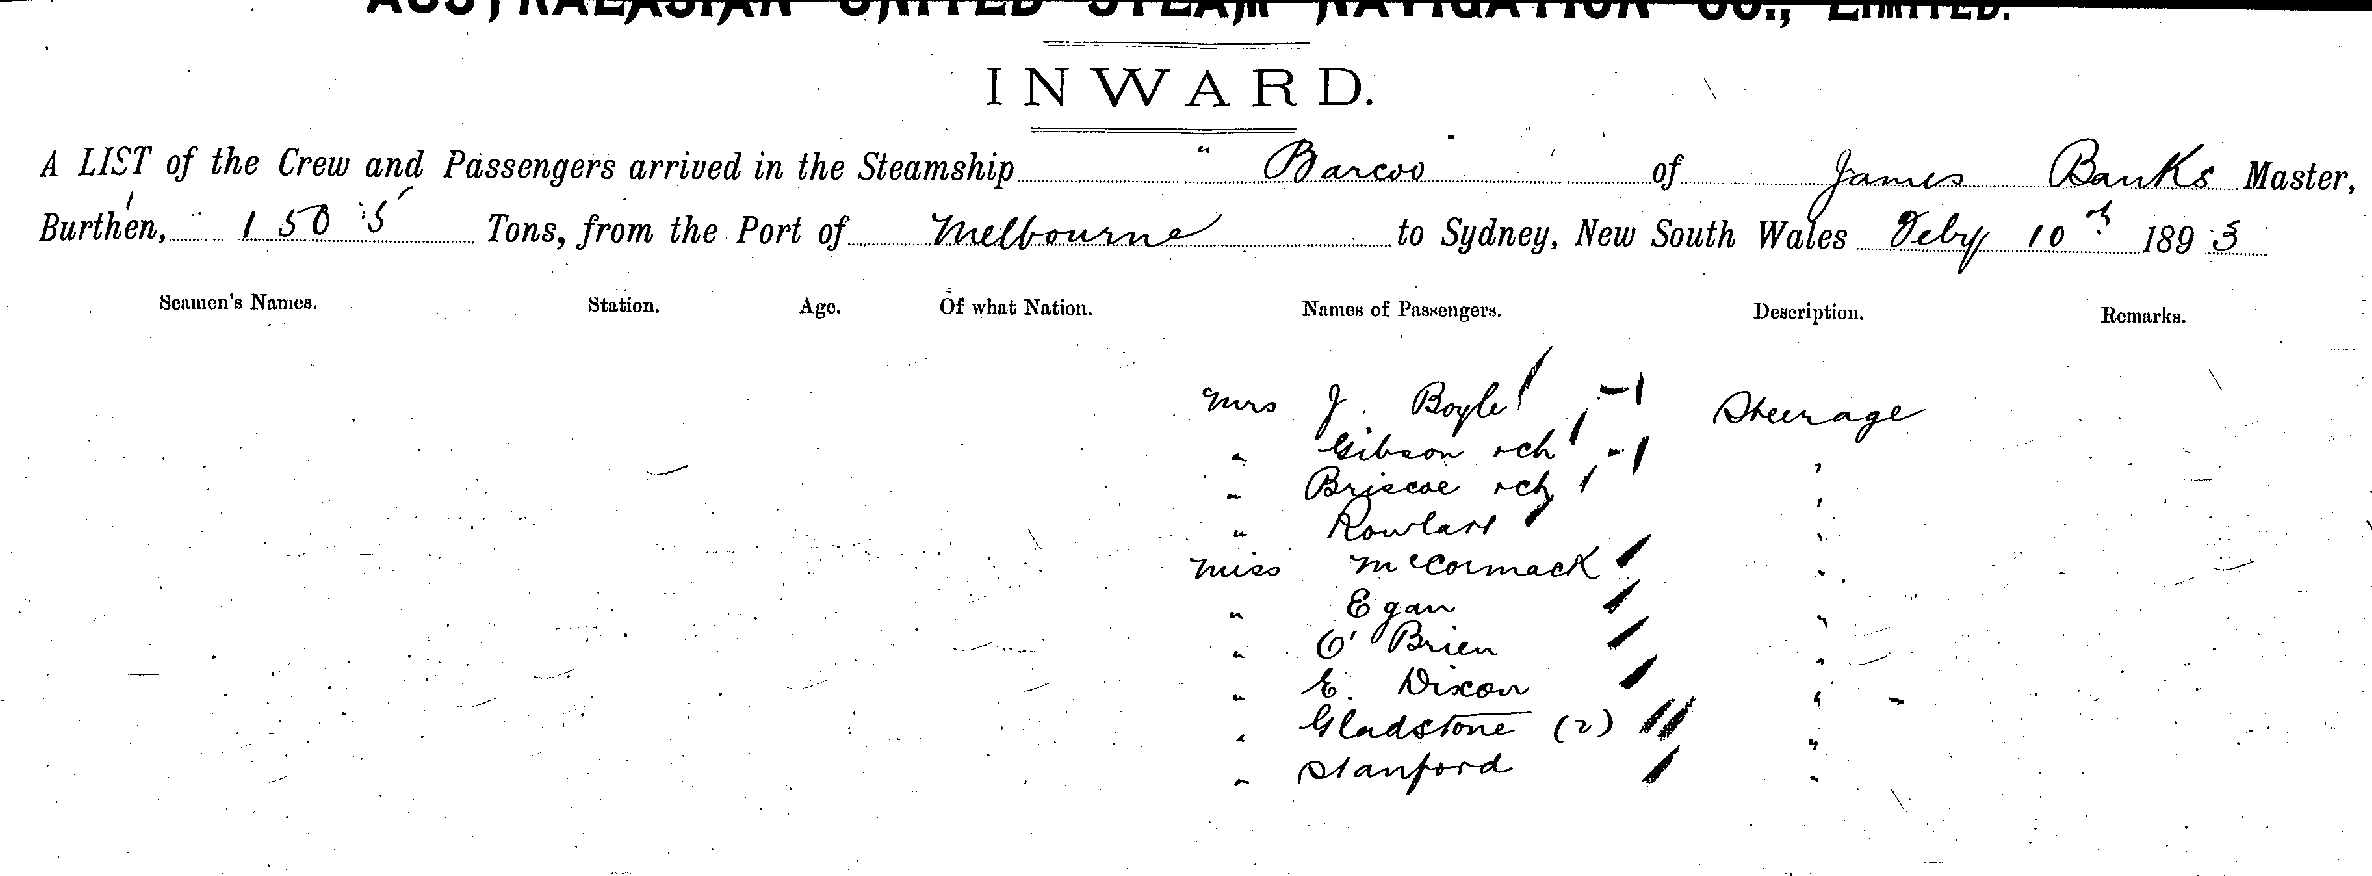 AUSTRALASIAN UNITED STEAM NAVIGATION CO., LIMITED.
INWARD.
A LIST of the Crew and Passengers arrived in the Steamship " Barcoo of James Banks Master,
Burthen, 1505 Tons, from the Port of Melbourne to Sydney, New South Wales Feby 10th 1893
Seamen's Names. Station. Age. Of what Nation. Names of Passengers. Description. Remarks.
Mrs J. Boyle Steerage
" Gibson + ch "
" Briscoe + ch "
" "
Miss McCormack "
" Egan "
" O'Brien "
" E. Dixon "
" Gladstone (2) "
" Stanford "